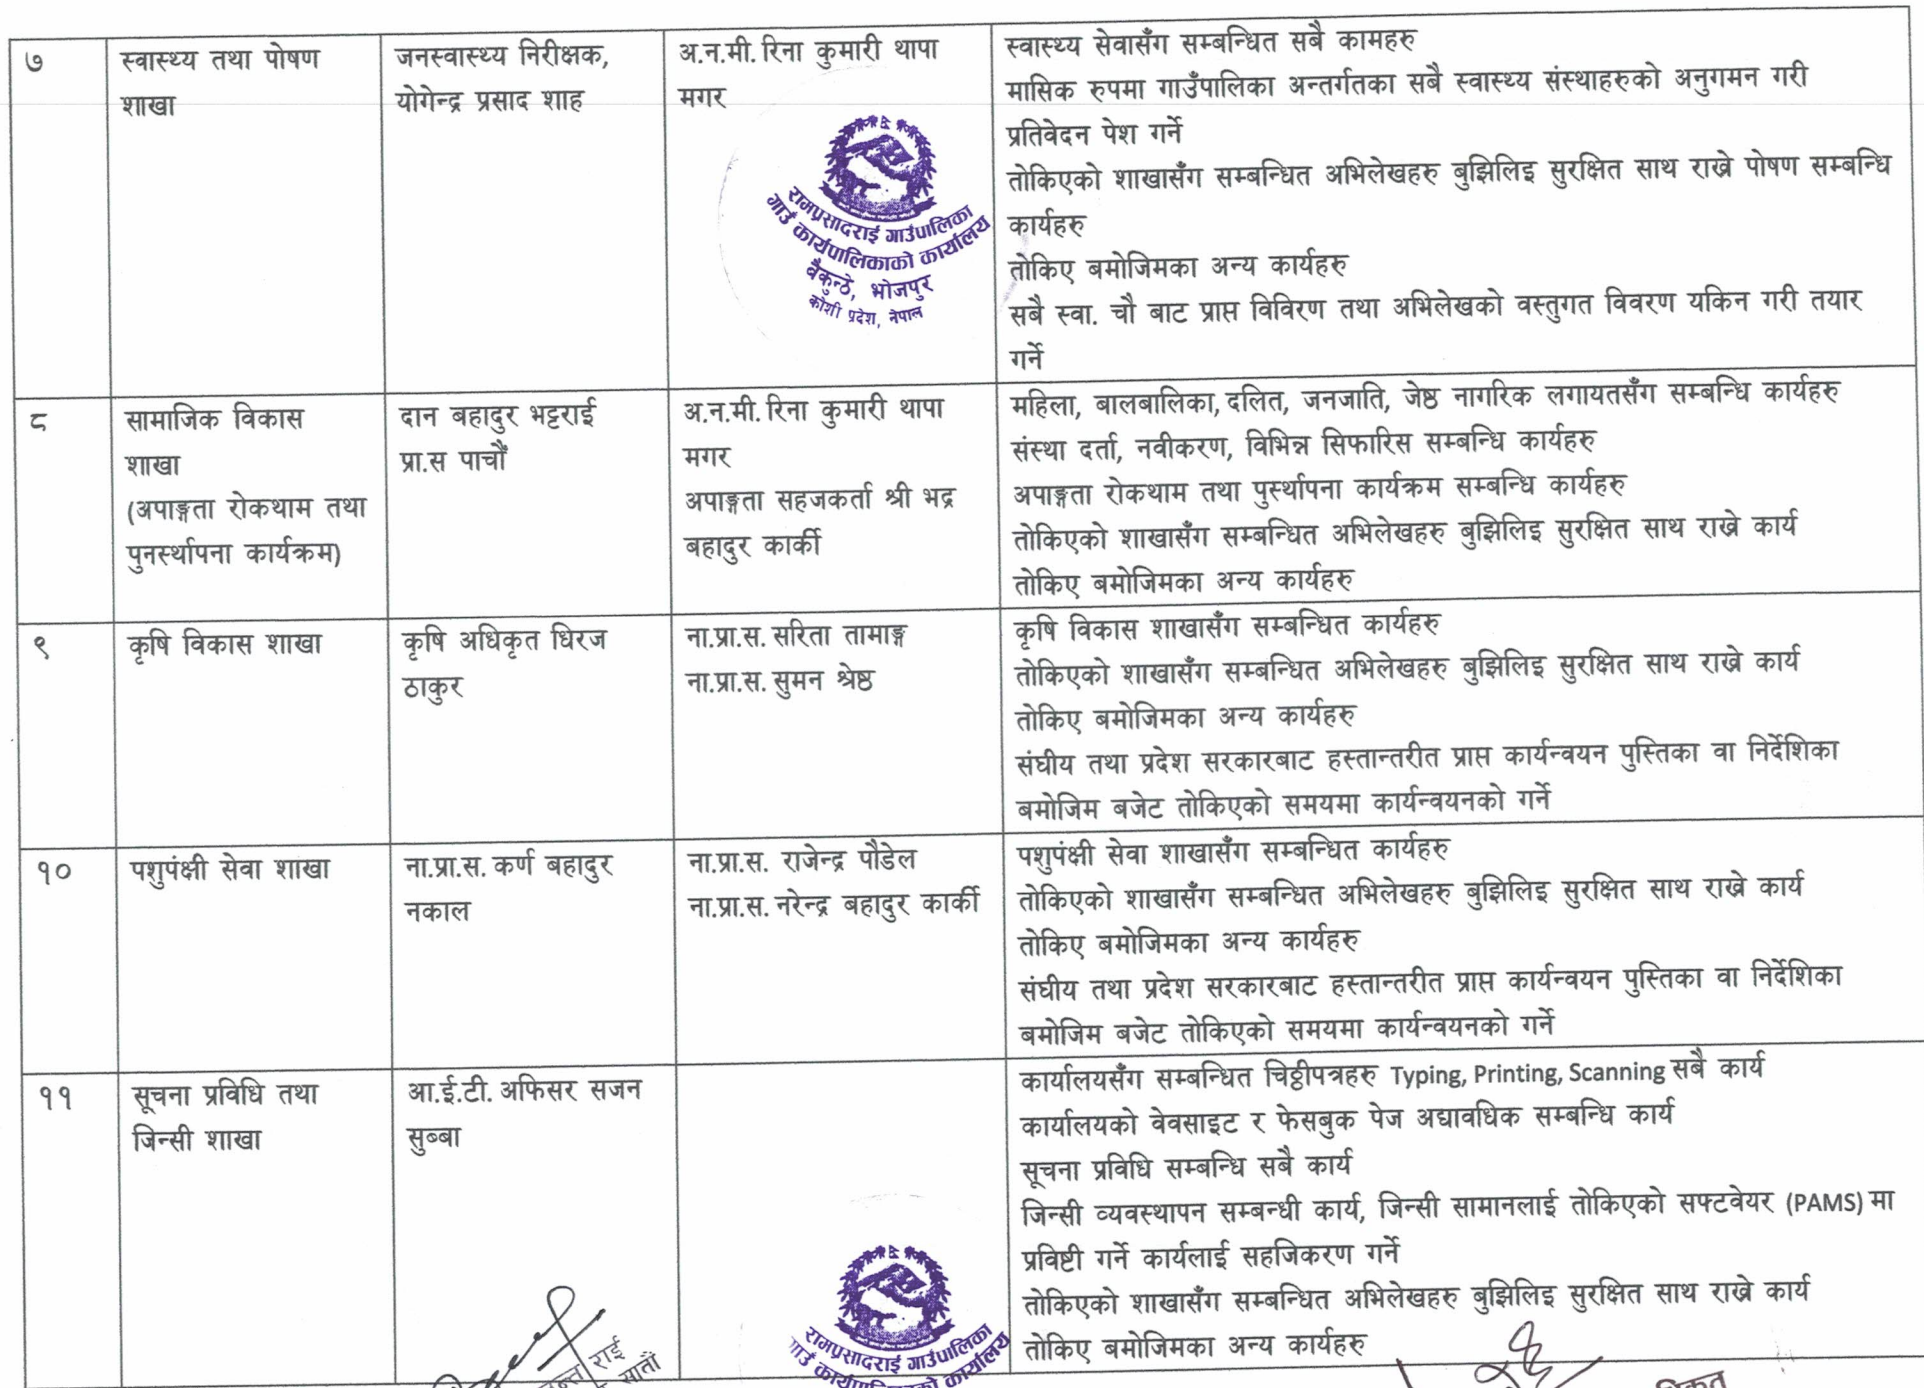 ७
स्वास्थ्य तथा पोषण
शाखा
जनस्वास्थ्य निरीक्षक,
योगेन्द्र प्रसाद शाह
अ.न.मी. रिना कुमारी थापा
मगर
स्वास्थ्य सेवासँग सम्बन्धित सबै कामहरु
मासिक रुपमा गाउँपालिका अन्तर्गतका सबै स्वास्थ्य संस्थाहरुको अनुगमन गरी
प्रतिवेदन पेश गर्ने
तोकिएको शाखासँग सम्बन्धित अभिलेखहरु बुझिलिइ सुरक्षित साथ राख्ने पोषण सम्बन्धि
कार्यहरु
तोकिए बमोजिमका अन्य कार्यहरु
सबै स्वा. चौ बाट प्राप्त विविरण तथा अभिलेखको वस्तुगत विवरण यकिन गरी तयार
गर्ने
रामप्रसादराई गाउँपालिका
गाउँ कार्यपालिकाको कार्यालय
बैकुन्ठे, भोजपुर
कोशी प्रदेश, नेपाल
८
सामाजिक विकास
शाखा
(अपाङ्गता रोकथाम तथा
पुनर्स्थापना कार्यक्रम)
दान बहादुर भट्टराई
प्रा.स पाचौं
अ.न.मी. रिना कुमारी थापा
मगर
अपाङ्गता सहजकर्ता श्री भद्र
बहादुर कार्की
महिला, बालबालिका, दलित, जनजाति, जेष्ठ नागरिक लगायतसँग सम्बन्धि कार्यहरु
संस्था दर्ता, नवीकरण, विभिन्न सिफारिस सम्बन्धि कार्यहरु
अपाङ्गता रोकथाम तथा पुर्स्थापना कार्यक्रम सम्बन्धि कार्यहरु
तोकिएको शाखासँग सम्बन्धित अभिलेखहरु बुझिलिइ सुरक्षित साथ राख्ने कार्य
तोकिए बमोजिमका अन्य कार्यहरु
९
कृषि विकास शाखा
कृषि अधिकृत धिरज
ठाकुर
ना.प्रा.स. सरिता तामाङ्ग
ना.प्रा.स. सुमन श्रेष्ठ
कृषि विकास शाखासँग सम्बन्धित कार्यहरु
तोकिएको शाखासँग सम्बन्धित अभिलेखहरु बुझिलिइ सुरक्षित साथ राख्ने कार्य
तोकिए बमोजिमका अन्य कार्यहरु
संघीय तथा प्रदेश सरकारबाट हस्तान्तरीत प्राप्त कार्यन्वयन पुस्तिका वा निर्देशिका
बमोजिम बजेट तोकिएको समयमा कार्यन्वयनको गर्ने
१०
पशुपंक्षी सेवा शाखा
ना.प्रा.स. कर्ण बहादुर
नकाल
ना.प्रा.स. राजेन्द्र पौडेल
ना.प्रा.स. नरेन्द्र बहादुर कार्की
पशुपंक्षी सेवा शाखासँग सम्बन्धित कार्यहरु
तोकिएको शाखासँग सम्बन्धित अभिलेखहरु बुझिलिइ सुरक्षित साथ राख्ने कार्य
तोकिए बमोजिमका अन्य कार्यहरु
संघीय तथा प्रदेश सरकारबाट हस्तान्तरीत प्राप्त कार्यन्वयन पुस्तिका वा निर्देशिका
बमोजिम बजेट तोकिएको समयमा कार्यन्वयनको गर्ने
११
सूचना प्रविधि तथा
जिन्सी शाखा
आ.ई.टी. अफिसर सजन
सुब्बा
कार्यालयसँग सम्बन्धित चिठ्ठीपत्रहरु Typing, Printing, Scanning सबै कार्य
कार्यालयको वेवसाइट र फेसबुक पेज अद्यावधिक सम्बन्धि कार्य
सूचना प्रविधि सम्बन्धि सबै कार्य
जिन्सी व्यवस्थापन सम्बन्धी कार्य, जिन्सी सामानलाई तोकिएको सफ्टवेयर (PAMS) मा
प्रविष्टी गर्ने कार्यलाई सहजिकरण गर्ने
तोकिएको शाखासँग सम्बन्धित अभिलेखहरु बुझिलिइ सुरक्षित साथ राख्ने कार्य
तोकिए बमोजिमका अन्य कार्यहरु
रामप्रसादराई गाउँपालिका
गाउँ कार्यपालिकाको कार्यालय
राई
सातौं